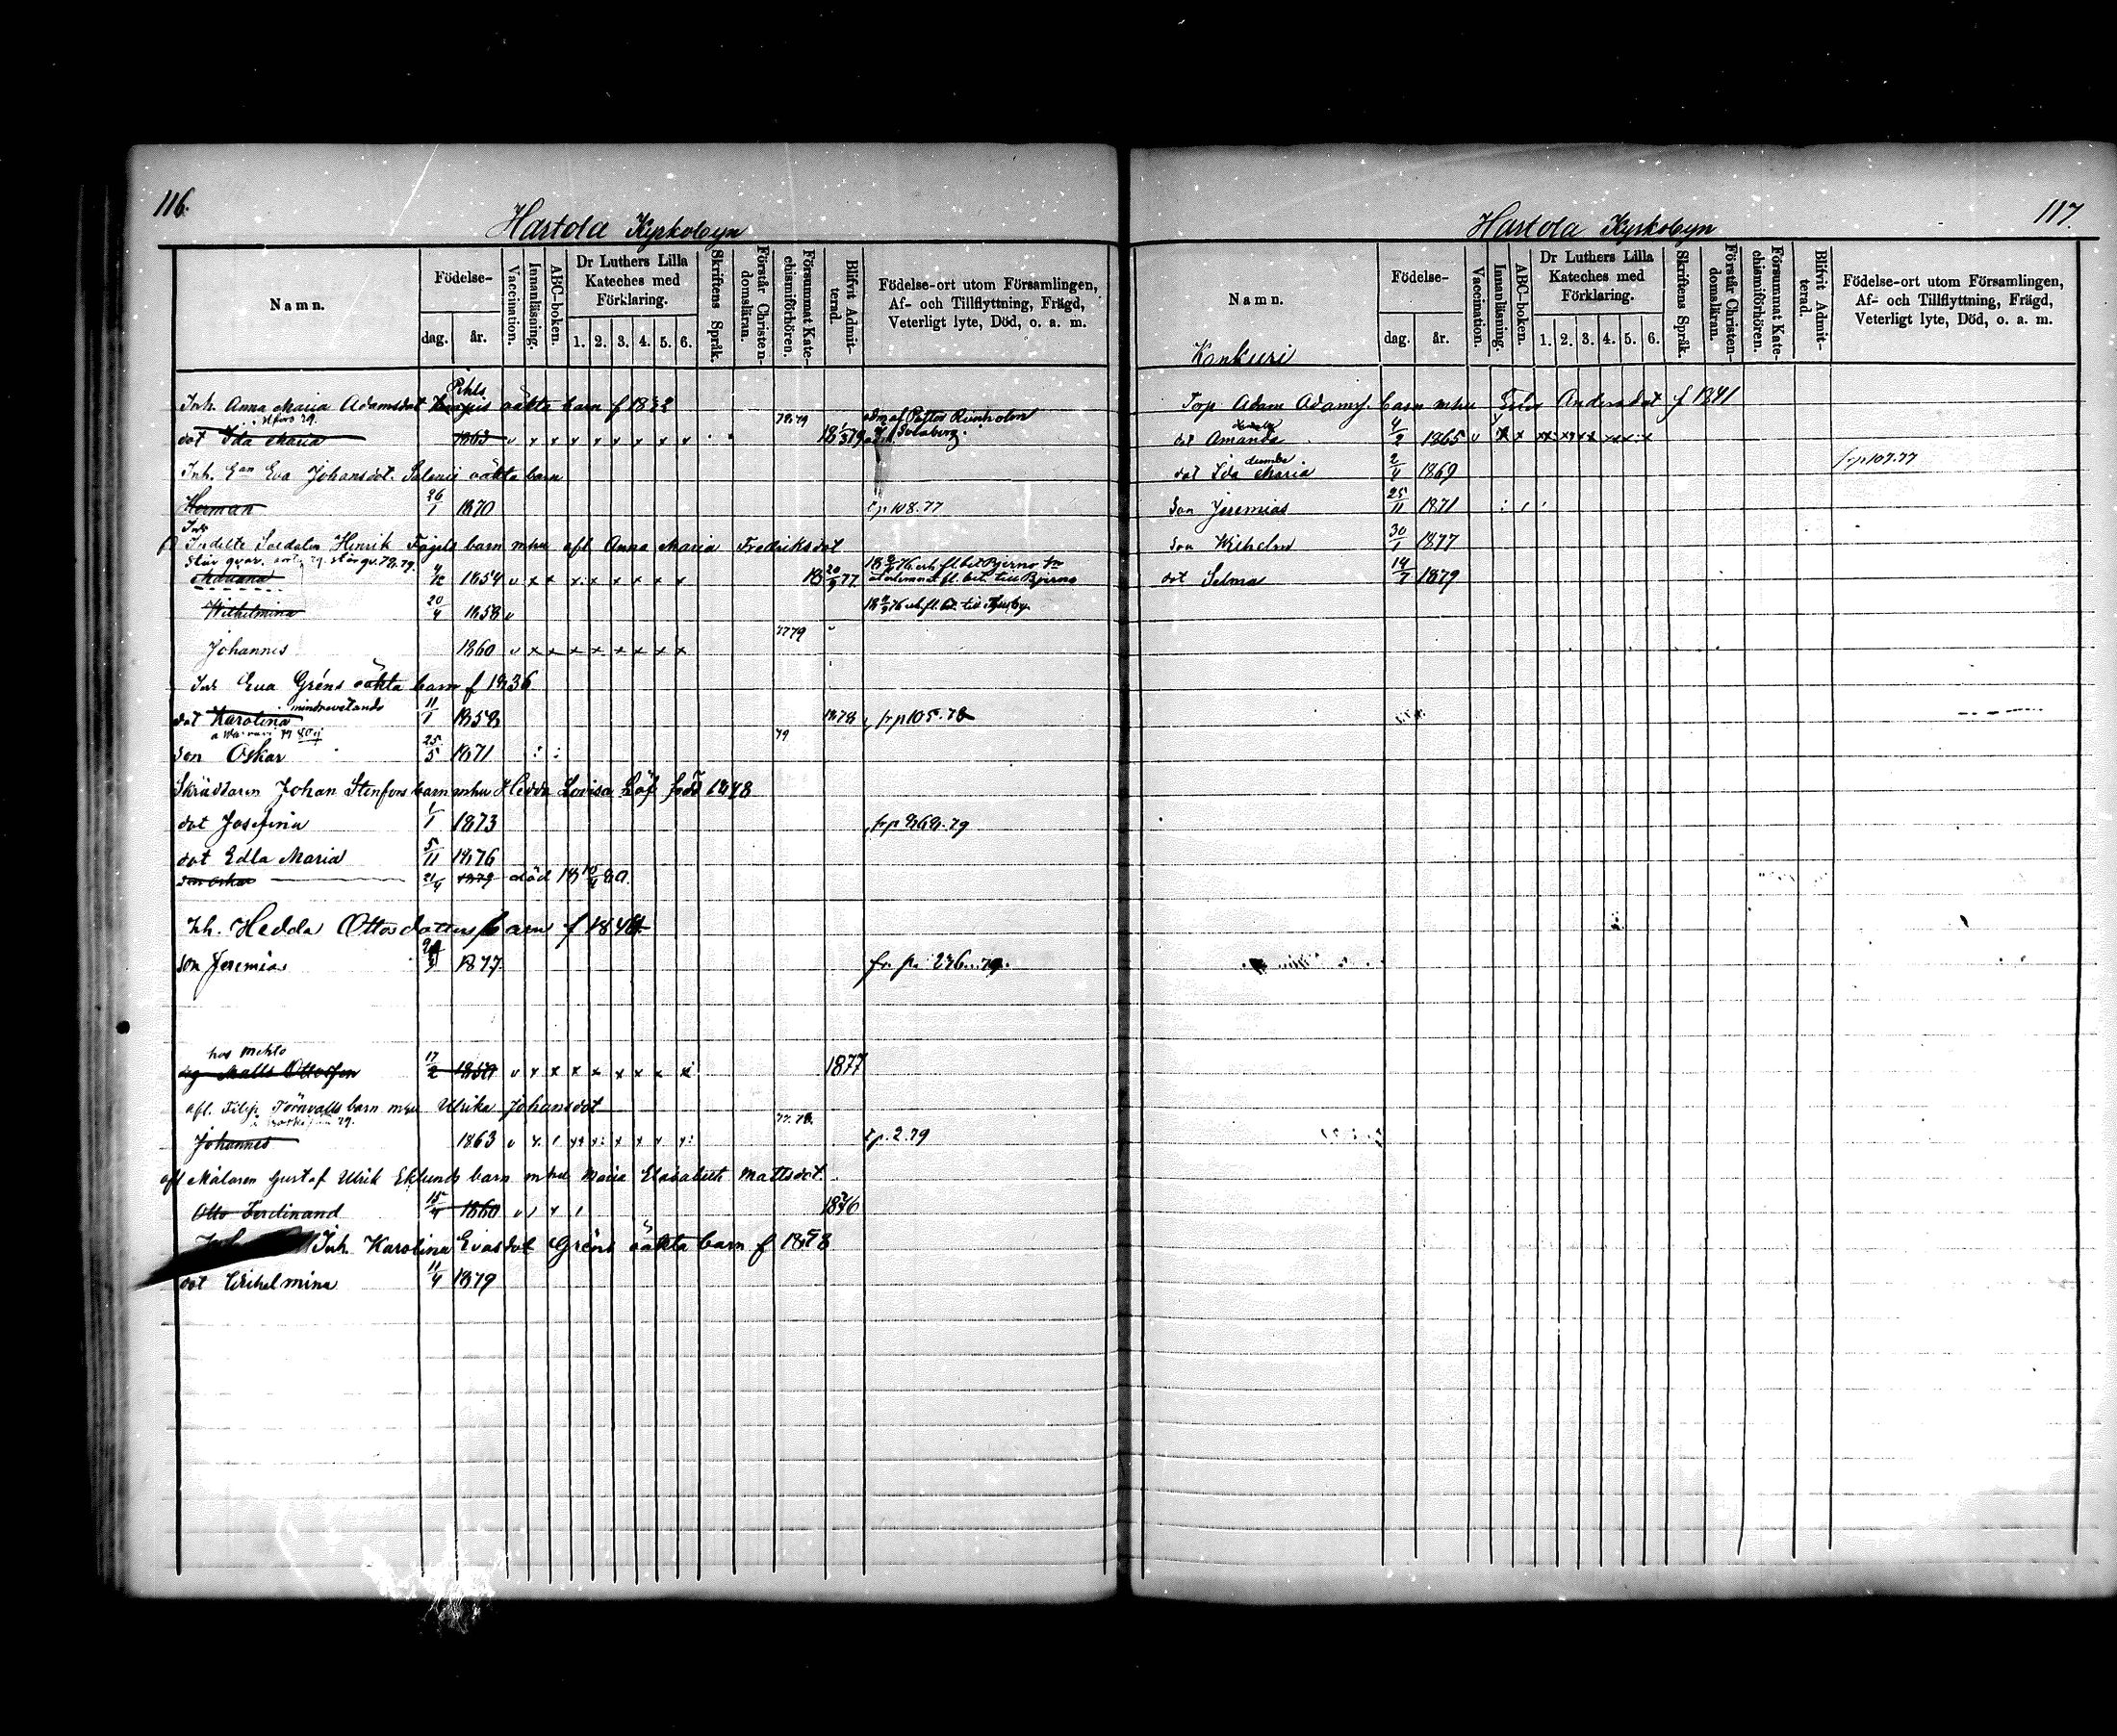 116.
Hastola Kyrkobyn
Namn.
Födelse-
dag.
år.
Vaccination.
Innanläsning.
ABC-boken.
Dr Luthers Lilla
Kateches med
Förklaring.
1. 2. 3. 4. 5. 6.
Skriftens Språk.
Förstår Christen-
domsläran.
Försummat Kate-
chismiförhören.
Blifvit Admit-
terad.
Födelse-ort utom Församlingen,
Af- och Tillflyttning, Frägd,
Veterligt lyte, Död, o. a. m.
Pihls
Inh. Anna Maria Adamsdot oäkta barn f 1822
dot Ida Maria 1863 v x x x x x x x x 78.79
adm af Pastor Renholm
Inh. Eva Johansdot. oäkta barn
Herman 26/1 1870 108.77
Indelte Soldaten Henrik Fogels barn mhu afl Anna Maria Fredriksdot
1854 v x x x x x x x x 18 20/9 77
Wilhelmina 20/4 1858 v
Johannes 1860 v x x x x x x x x 77 79
Inh Eva Gréns oäkta barn f 1836
mindrevetande
dot Karolina 11/1 1858 1878 frp 105.78
son Oskar 25/5 1871 79
Skräddaren Johan Stenfors barn mhu Hedda Lovisa Löf född 1848
dot Josefina 1/1 1873 frp 268.79
dot Edla Maria 5/11 1876
son Oskar 21/4 1879 död 18 80.
Inh. Hedda Ottosdotters barn f 1844
son Jeremias 1877. fr. p. 276..79.
hos Mehto
drg Matts Ottosson 17/2 1859 v x x x x x x x x 1877
afl. Filip Törnvalls barn mhu Ulrika Johansdot
Johannes 1863 v 77.78. 2.79
afl Målaren Gustaf Ulrik Eklunds barn mhu Maria Elisabeth Mattsdot.
Otto Ferdinand 15/4 1860 1876
Inh. Karolina Evasdot Gréns oäkta barn f 1858
dot Wilhelmina 11/4 1879
117.
Hastola Kyrkobyn
Namn.
Födelse-
dag.
år.
Vaccination.
Innanläsning.
ABC-boken.
Dr Luthers Lilla
Kateches med
Förklaring.
1. 2. 3. 4. 5. 6.
Skriftens Språk.
Förstår Christen-
domsläran.
Försummat Kate-
chismiförhören.
Blifvit Admit-
terad.
Födelse-ort utom Församlingen,
Af- och Tillflyttning, Frägd,
Veterligt lyte, Död, o. a. m.
Kankuri
Torp Adam Adamss. barn mhu Andersdot f 1841
dot Amanda 4/2 1865 v
dot Ida Maria 2/4 1869 frp 107.77
son Jeremias 25/11 1871
son Wilhelm 30/1 1877
dot Selma 14/7 1879